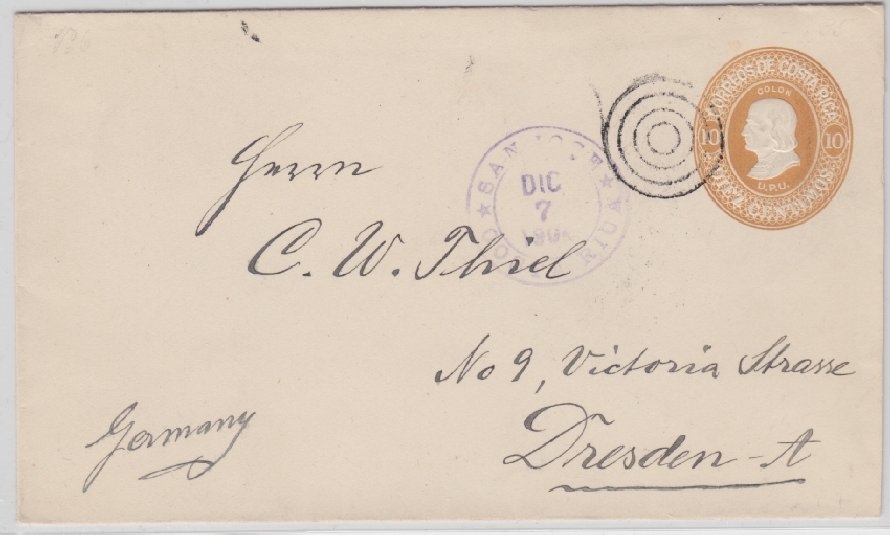 CORREOS DE COSTA RICA
COLON
10 10
U.P.U.
DIEZ CENTIMOS
SAN JOSE
DIC
7
Herrn
C. W. Thiel
No 9, Victoria Strasse
Dresden-A
Germany